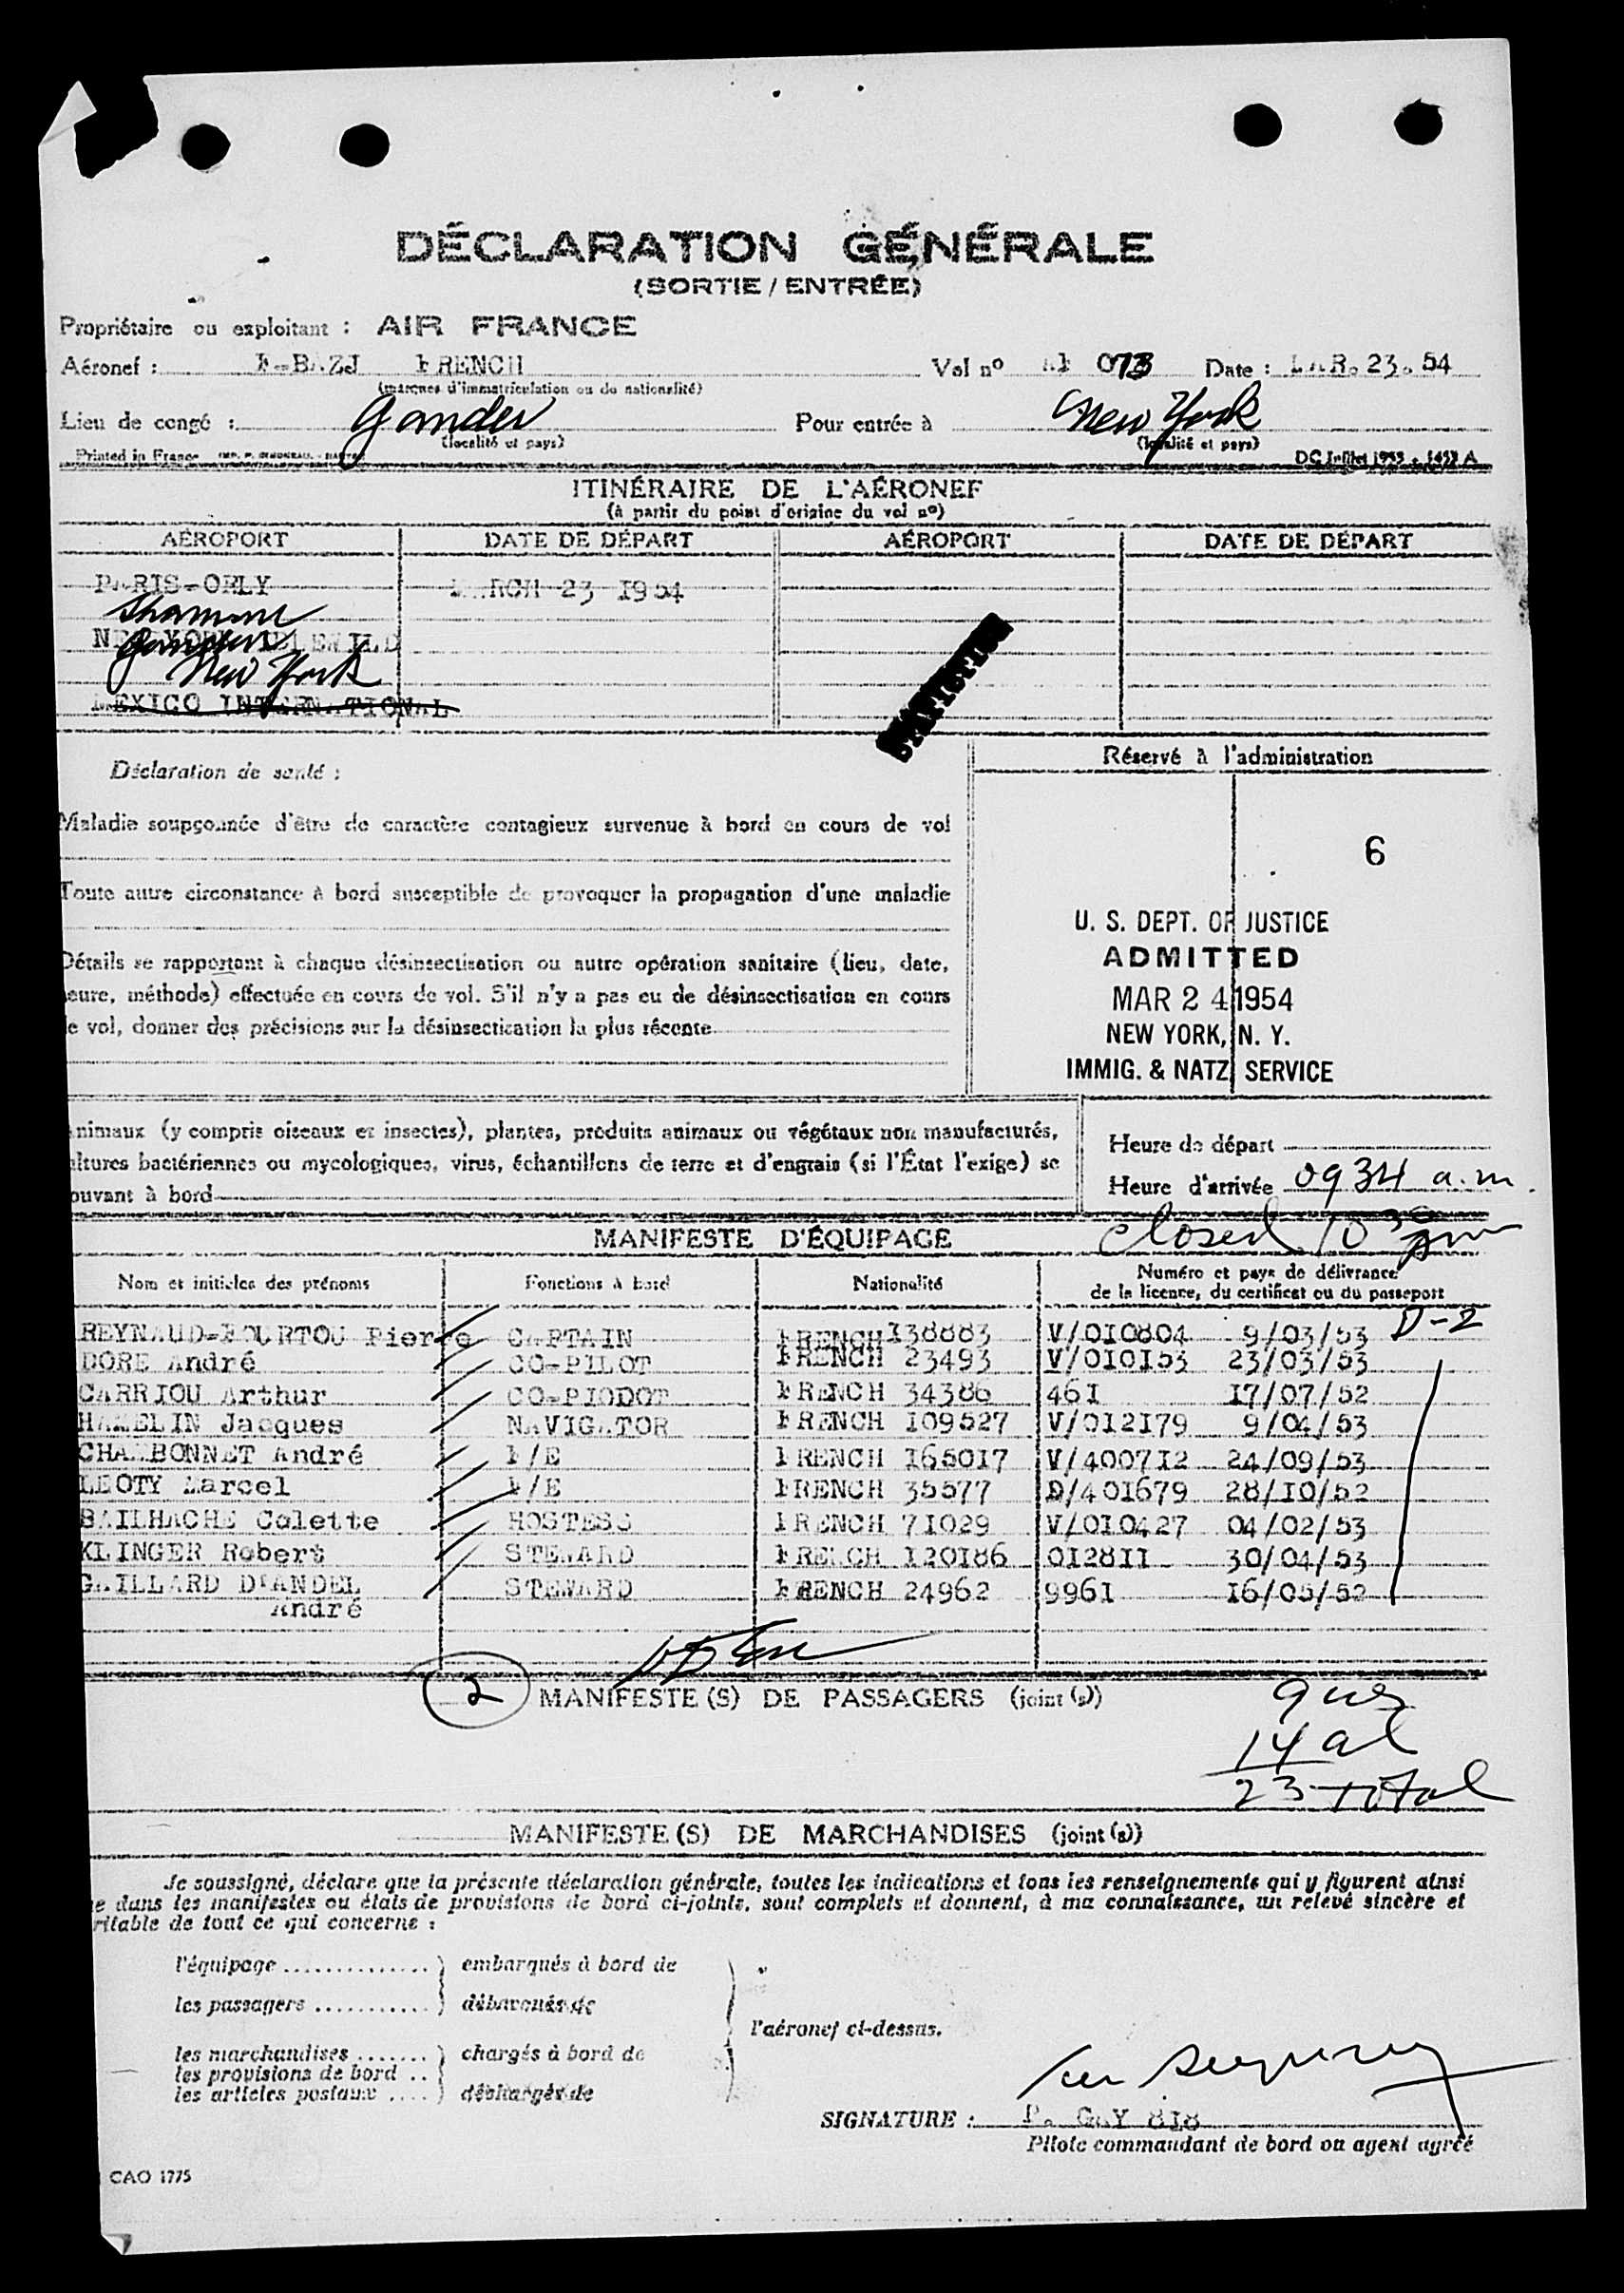 DÉCLARATION GÉNÉRALE
(SORTIE / ENTRÉE)
Propriétaire ou exploitant : AIR FRANCE
Aéronef : F-BAZJ FRENCH Vol nº AF 073 Date : MAR. 23. 54
(marques d'immatriculation ou de nationalité)
Lieu de congé : Gander Pour entrée à New York
(localité et pays) (localité et pays)
Printed in France DC Juillet 1953 - 1453 A
ITINÉRAIRE DE L'AÉRONEF
(à partir du point d'origine du vol nº)
AÉROPORT DATE DE DÉPART AÉROPORT DATE DE DÉPART
PARIS-ORLY MARCH 23 1954
Shannon
NEW YORK IDLEWILD
Gander
New York
MEXICO INTERNATIONAL
STATISTICS
Déclaration de santé :
Réservé à l'administration
Maladie soupçonnée d'être de caractère contagieux survenue à bord en cours de vol
6
Toute autre circonstance à bord susceptible de provoquer la propagation d'une maladie
U. S. DEPT. OF JUSTICE
ADMITTED
MAR 24 1954
NEW YORK, N. Y.
IMMIG. & NATZ. SERVICE
Détails se rapportant à chaque désinsectisation ou autre opération sanitaire (lieu, date,
eure, méthode) effectuée en cours de vol. S'il n'y a pas eu de désinsectisation en cours
e vol, donner des précisions sur la désinsectisation la plus récente
nimaux (y compris oiseaux et insectes), plantes, produits animaux ou végétaux non manufacturés,
ltures bactériennes ou mycologiques, virus, échantillons de terre et d'engrais (si l'État l'exige) se
ouvant à bord
Heure de départ
Heure d'arrivée 0934 a.m.
MANIFESTE D'ÉQUIPAGE closed 10 30 am
Nom et initiales des prénoms Fonctions à bord Nationalité Numéro et pays de délivrance
de la licence, du certificat ou du passeport
REYNAUD-BOURTOU Pierre CAPTAIN FRENCH 138883 V/010804 9/03/53 D-2
DORE André CO-PILOT FRENCH 23493 V/010153 23/03/53
CARRIOU Arthur CO-PIODOT FRENCH 34386 461 17/07/52
HAMELIN Jacques NAVIGATOR FRENCH 109527 V/012179 9/04/53
CHAMBONNET André F/E FRENCH 165017 V/400712 24/09/53
LEOTY Marcel F/E FRENCH 35577 D/401679 28/10/52
BAILHACHE Colette HOSTESS FRENCH 71029 V/010427 04/02/53
KLINGER Robert STEWARD FRENCH 120186 012811 30/04/53
GAILLARD D'ANDEL STEWARD FRENCH 24962 9961 16/05/52
André
2 MANIFESTE (S) DE PASSAGERS (joint (s))
9
14 al
23 total
MANIFESTE (S) DE MARCHANDISES (joint (s))
Je soussigné, déclare que la présente déclaration générale, toutes les indications et tous les renseignements qui y figurent ainsi
e dans les manifestes ou états de provisions de bord ci-joints, sont complets et donnent, à ma connaissance, un relevé sincère et
ritable de tout ce qui concerne :
l'équipage .............. } embarqués à bord de
les passagers ........... } débarqués de
l'aéronef ci-dessus.
les marchandises ....... } chargés à bord de
les provisions de bord ..
les articles postaux .... } déchargés de
SIGNATURE : P. GAY 818
Pilote commandant de bord ou agent agréé
CAO 1775